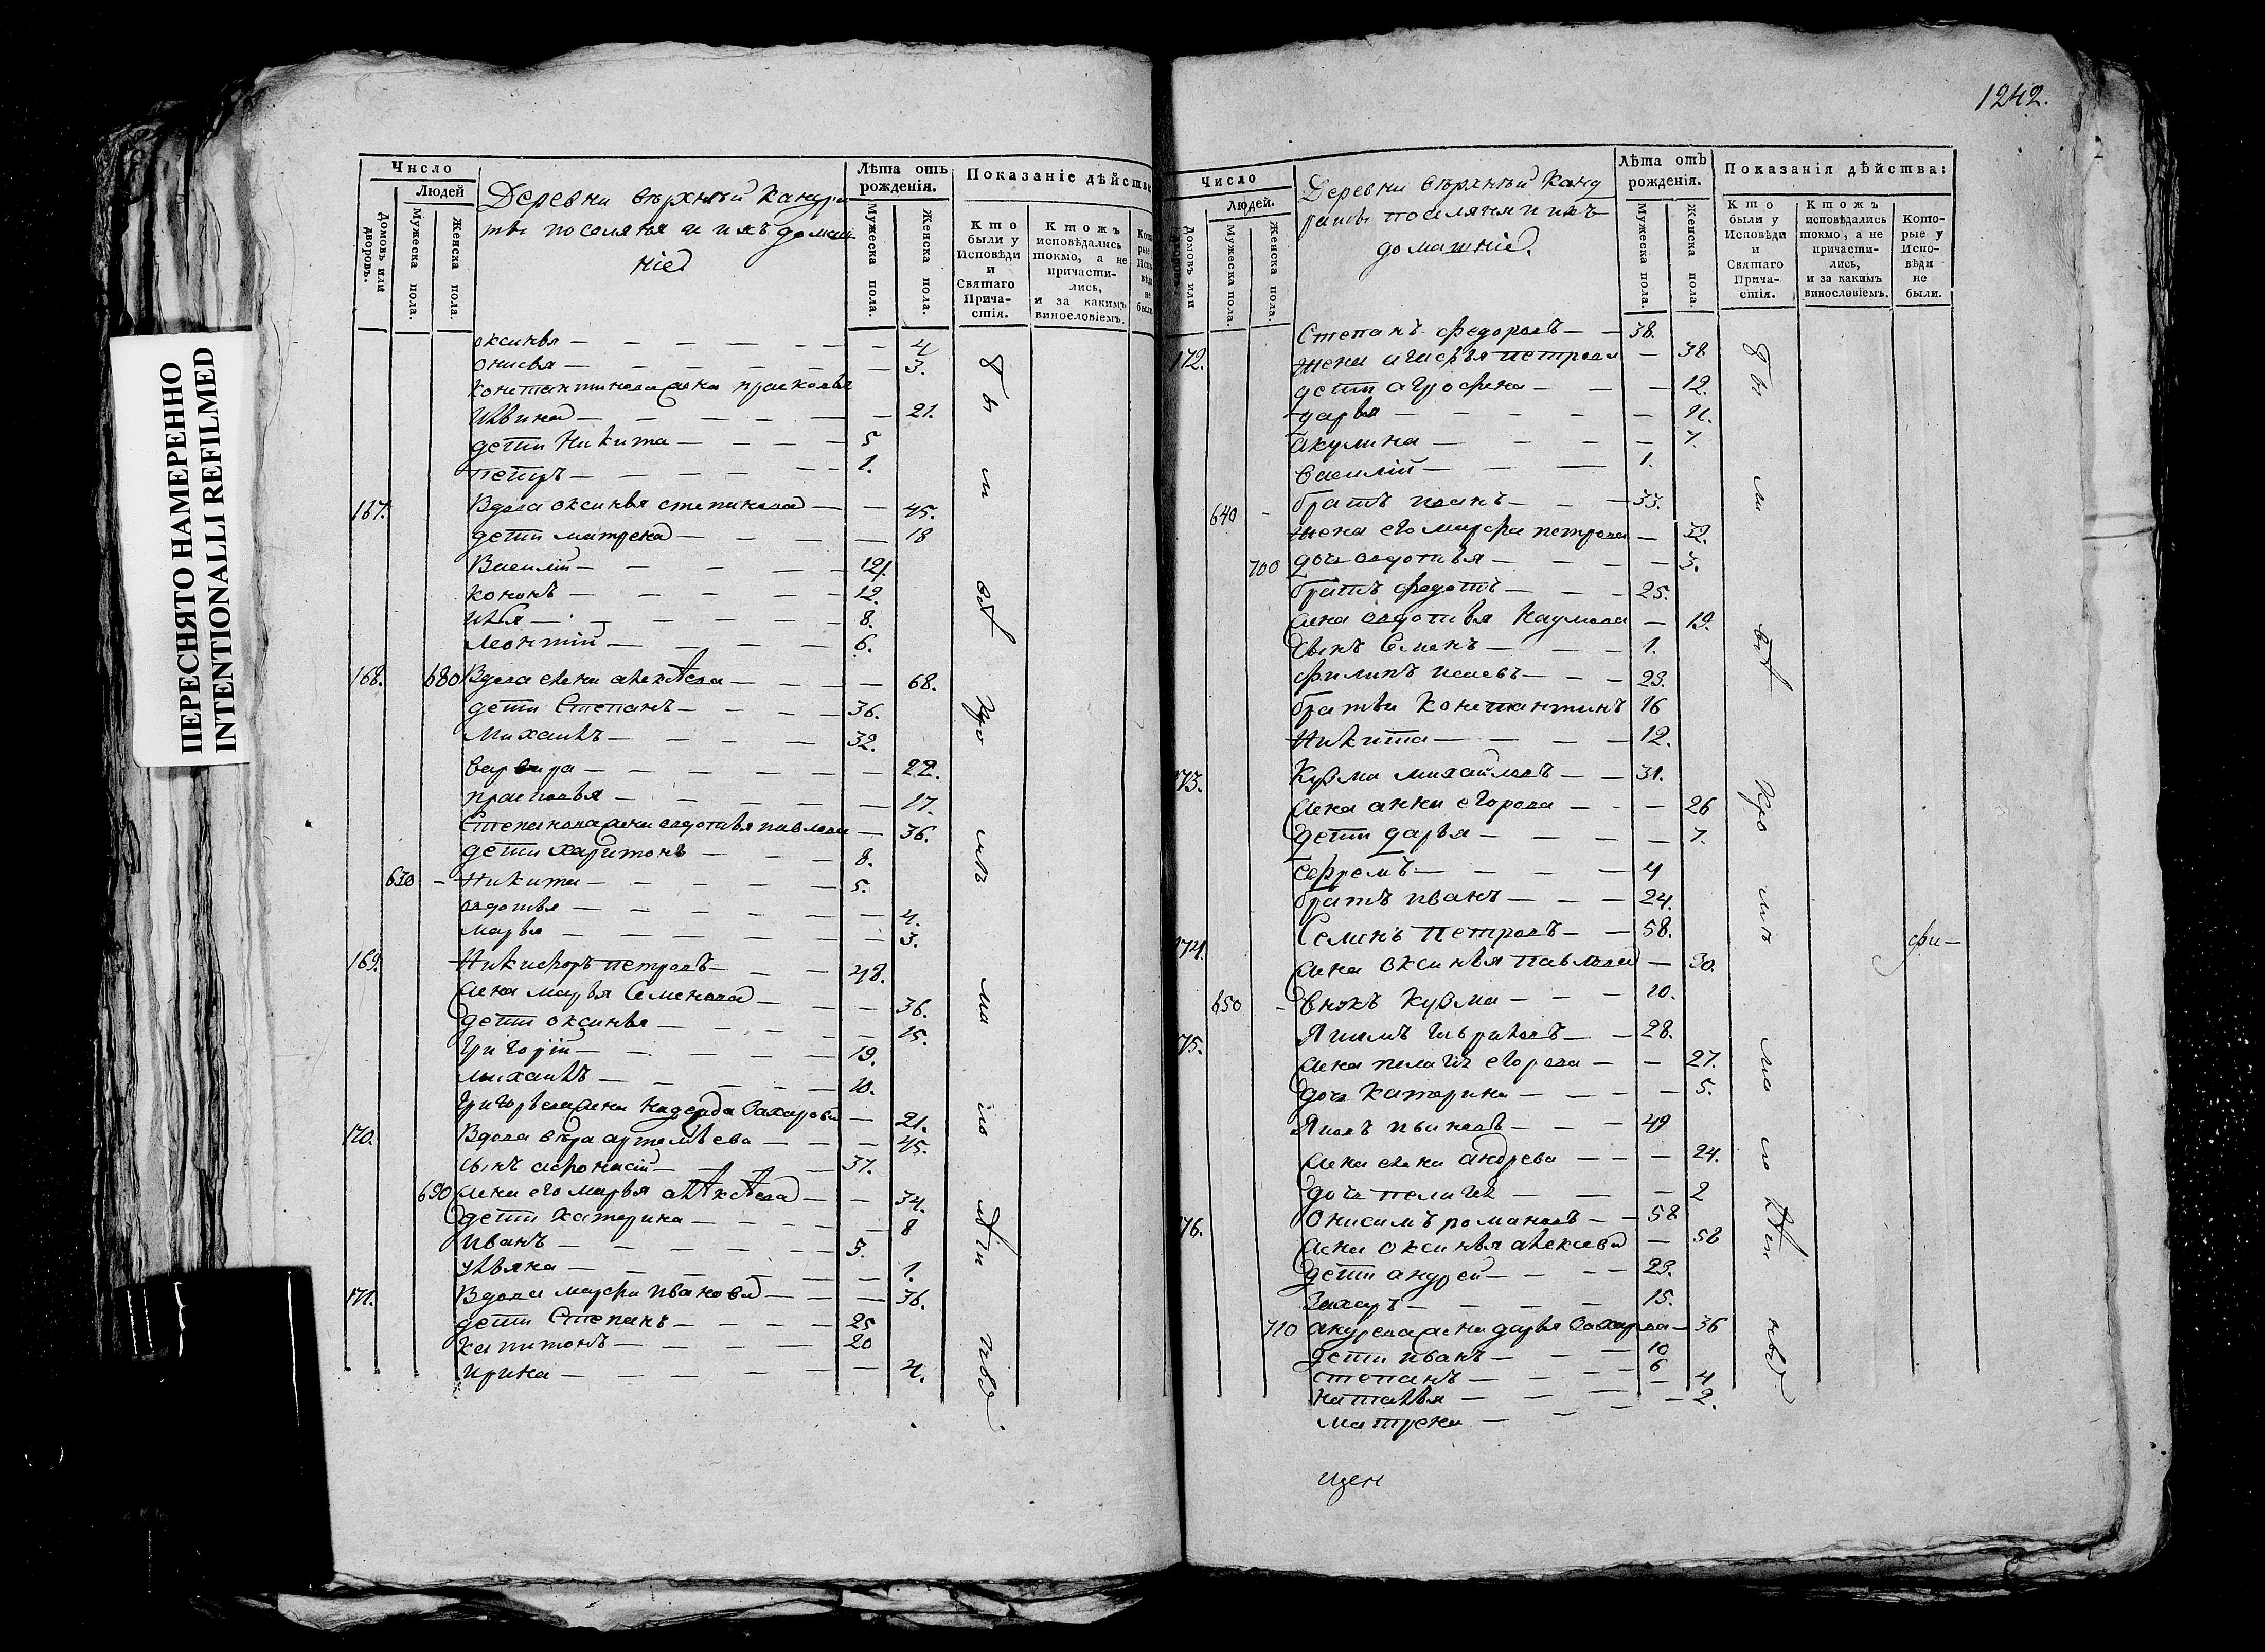 ПЕРЕСНЯТО НАМЕРЕННО
INTENTIONALLI REFILMED
Число
Людей
Домовъ или дворовъ.
Мужеска пола.
Женска пола.
Деревни верхнѣй
поселяня и ихъ домаш
ніе
Лѣта отъ рожденія.
Мужеска пола.
Женска пола.
Показаніе дѣйства
Кто были у Исповѣди и Святаго Причастія.
Ктожъ исповѣдались токмо, а не причастились, и за какимъ винословіемъ.
оксинья — 4
онисья — 3.
константинова жена прасковья
ильина — 21.
дети Никита — 5
петръ — 1.
167. Вдова оксинья степанова — 45.
дети матрена — 18
Василій —
кононъ — 12.
илья — 8.
леонтій — 6.
168. 680 Вдова елена алексѣева — 68.
дети Степанъ — 36.
Михаилъ — 32.
варвара — 22.
прасковья — 17.
Степанова жена авдотья павлова — 36.
дети харитонъ — 8.
630 Никита — 5.
авдотья — 4.
марья — 3.
169. Никифоръ петровъ — 48.
жена марья Семенова — 36.
дети оксинья — 15.
Григорій — 19.
михаилъ — 10.
Григорьева жена надежда Захарова — 21.
170. Вдова вера артемьева — 45.
сынъ афонасій — 37.
690 жена его марья алексѣева — 34.
дети Катерина — 8
Иванъ — 5.
ульяна — 1.
171. Вдова марфа иванова — 36.
дети Степанъ — 25
капитонъ — 20
ирина — 4.
1242.
Число
Людей.
Домовъ или
Мужеска пола.
Женска пола.
Деревни верхнѣй Канд
поселяня и ихъ
домашніе.
Лѣта отъ рожденія.
Мужеска пола.
Женска пола.
Показанія дѣйства:
Кто были у Исповѣди и Святаго Причастія.
Ктожъ исповѣдались токмо, а не причастились, и за какимъ винословіемъ.
Которые у Исповѣди не были.
172. Степанъ федоровъ — 38.
жена петрова — 38
дети агрофена — 12.
дарья — 11.
акулина — 7.
василій — 1.
640 братъ иванъ — 33.
жена его марфа петрова — 32.
700 дочь авдотья — 3.
братъ федотъ — 25.
жена авдотья Наумова — 19.
сынъ Семенъ — 1.
филипъ исаевъ — 23.
братья Константинъ 16
Никита — 12.
173. Кузма михайловъ — 31.
жена анна егорова — 26
дети дарья — 7.
ефремъ — 4
братъ иванъ — 24.
174. Семенъ петровъ — 58.
жена оксинья павлова — 30.
650 внукъ Кузма — 10.
175. Якимъ гавриловъ — 28.
жена пелагія егорова — 27.
дочь Катерина — 5.
49
жена елена андрева — 24.
дочь пелагия — 2
176. Онисимъ романовъ — 58
жена оксинья алексева — 58
дети андрей — 23.
Захаръ — 15.
710 андреева жена дарья Захарова — 36
дети иванъ — 10
степанъ — 6
наталья — 4
матрена — 2.